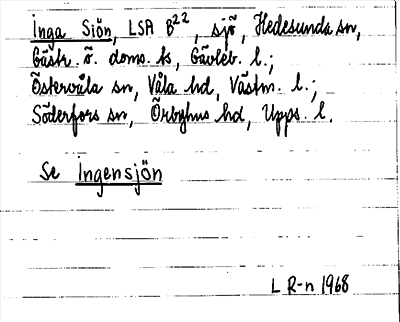 Inga Siön, LSA B22, sjö, Hedesunda sn,
Gästr. ö. doms. ts, Gävleb. l.;
Östervåla sn, Våla hd, Västm. l.;
Söderfors sn, Örbyhus hd, Upps. l.
Se Ingensjön
L R-n 1968